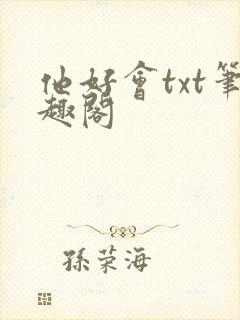 他好會txt筆
趣閣
孫荣海